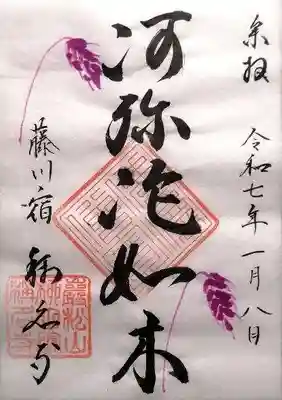 奉拝
令和七年一月八日
阿弥陀如来
藤川宿
称名寺